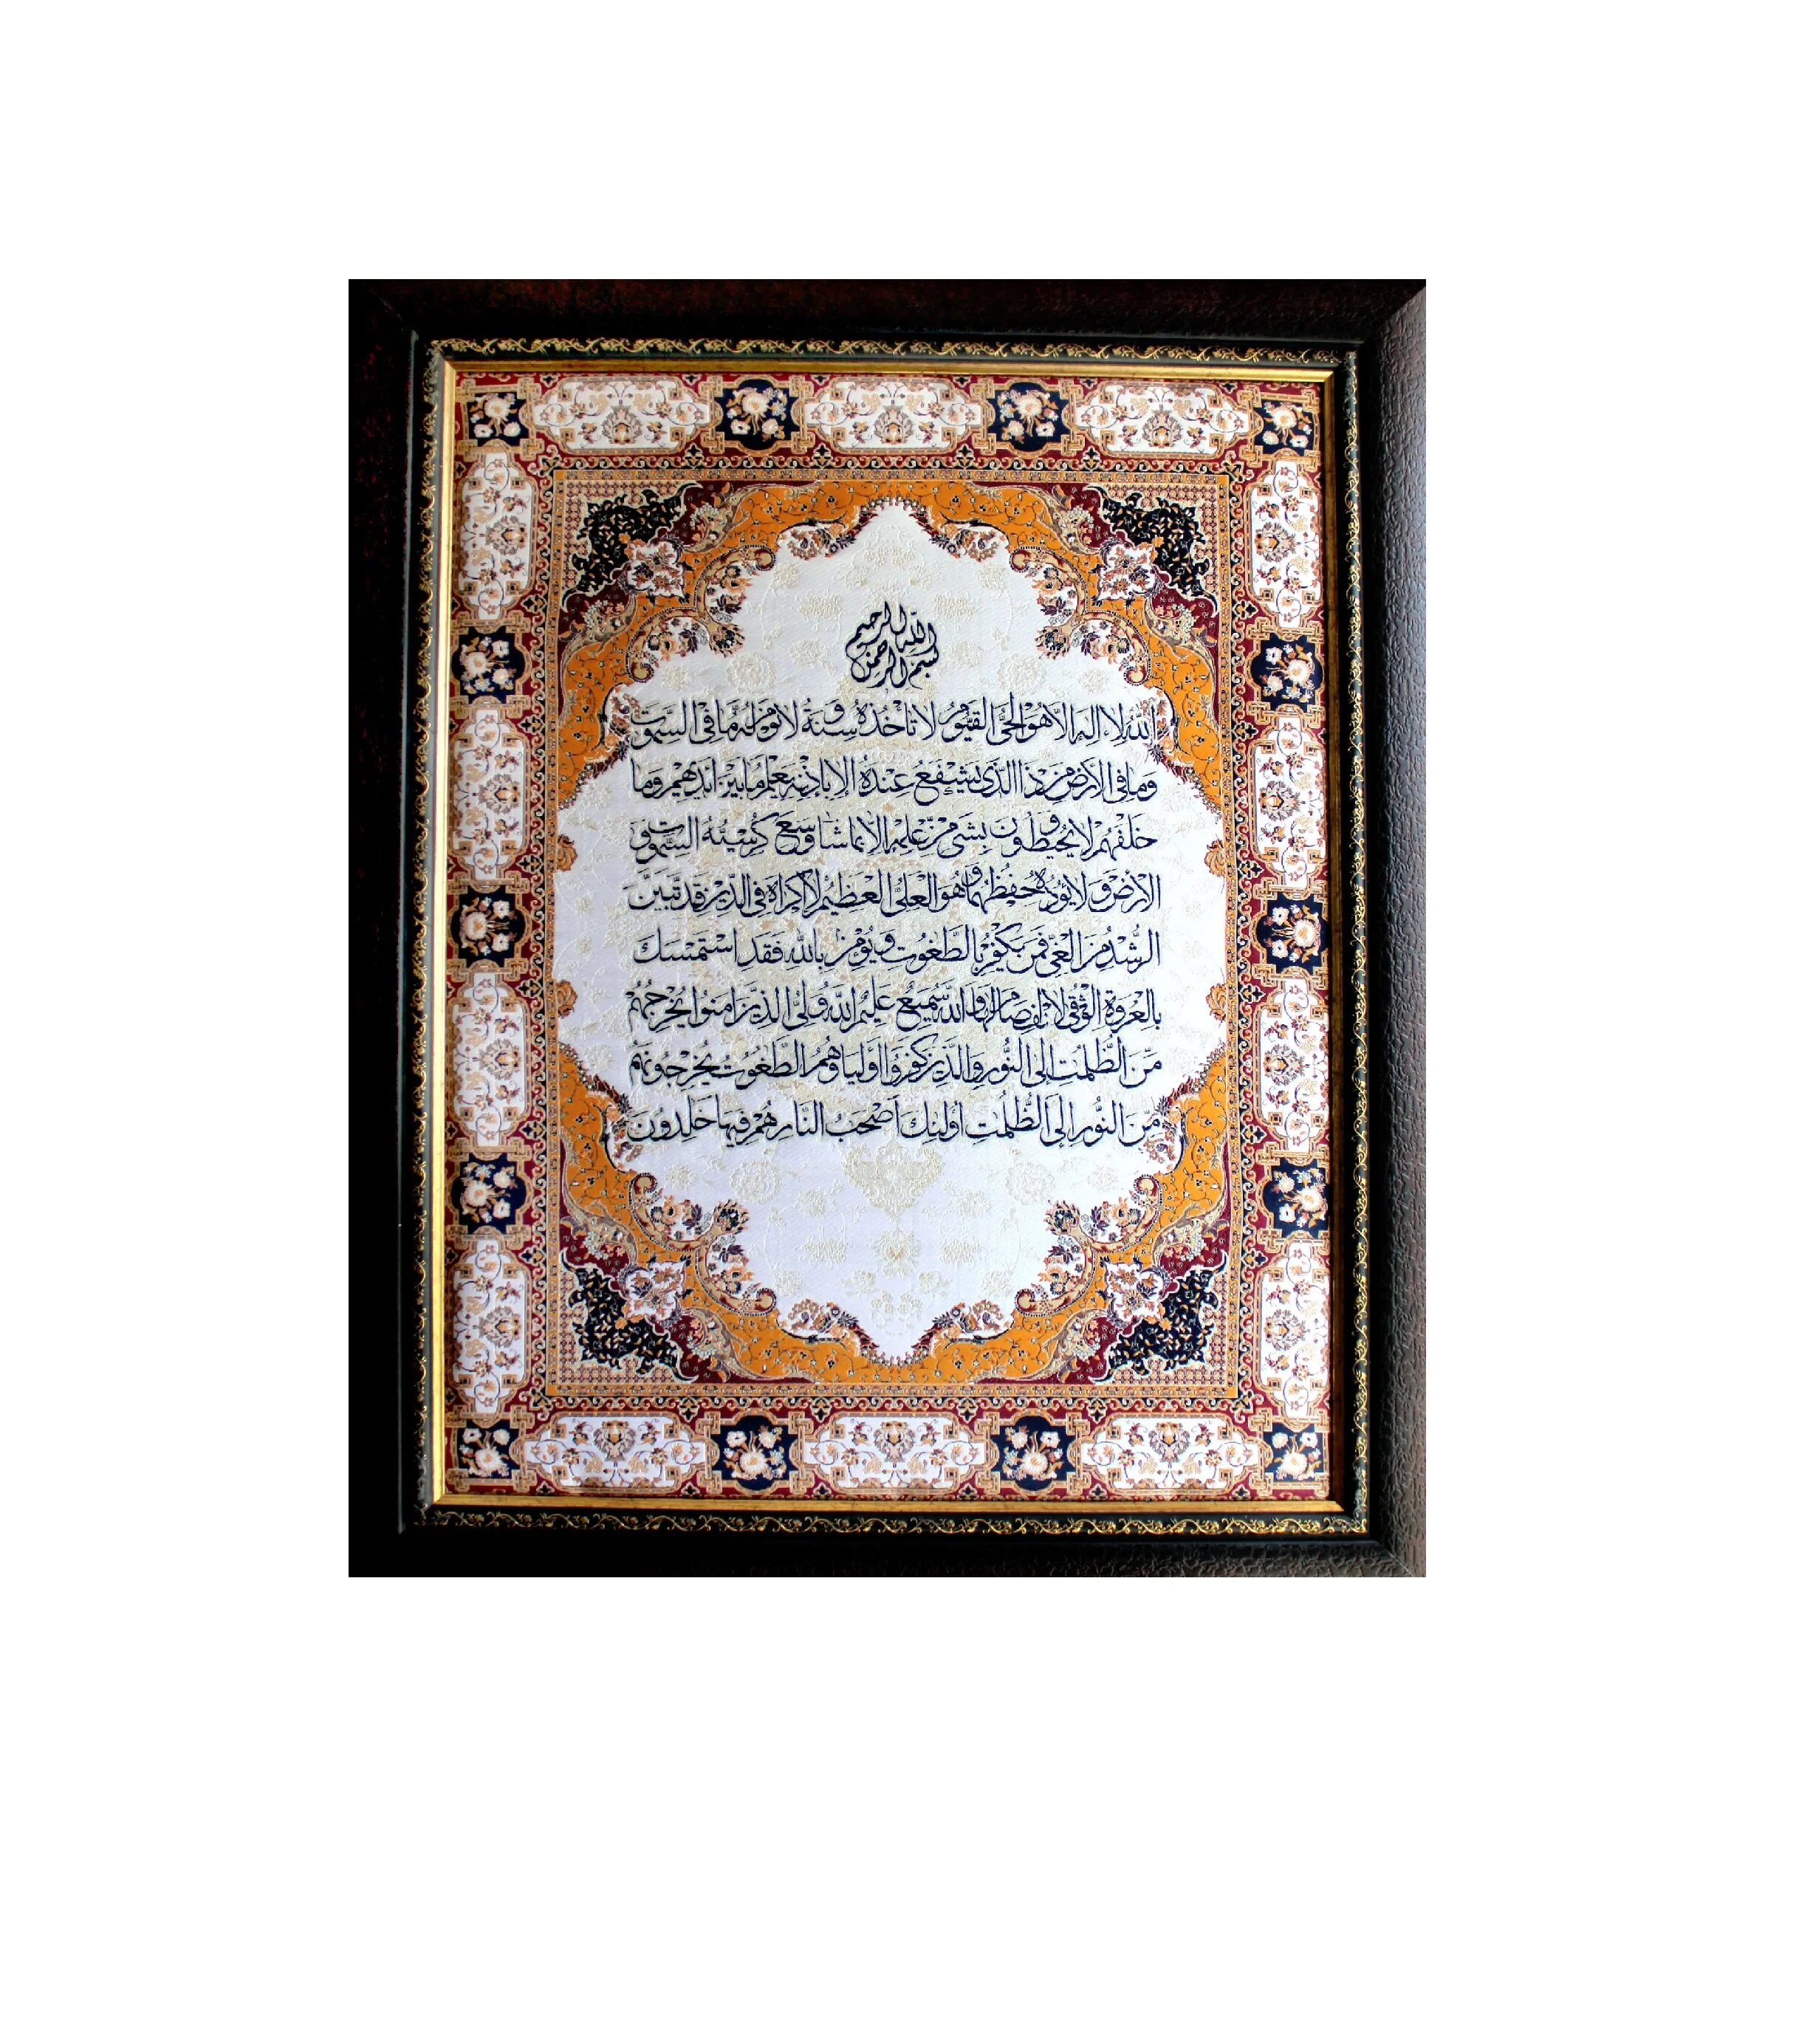 بسم الله الرحمن الرحيم
اَللّٰهُ لا اِلهَ الاّ هُوَ الحَیُّ القَیُّومُ لا تَأخُذُهُ سِنَةٌ وَ لا نَومٌ لَهُ مَا فِی السَّمٰوٰتِ
وَ ما فِی الاَرضِ مَن ذَا الَّذی یَشْفَعُ عِندَهُ اِلا بِاِذنِهِ یَعلَمُ ما بَینَ اَیدیهِم وَ ما
خَلْفَهُم وَ لا یُحیطُونَ بِشَیءٍ مِن عِلمِهِ اِلاّ بِما شاءَ وَسِعَ کُرسِیُّهُ السَّمٰوٰتِ وَ
الاَرْضَ وَ لا یَؤُدُهُ حِفظُهُما وَ هُوَ العَلیُّ العَظیمُ لا اِکراهَ فِی الدّینِ قَد تَبَیَّنَ
الرُّشدُ مِنَ الغَیِّ فَمَن یَکفُر بِالطّٰغُوتِ وَ یُؤمِن بِاللهِ فَقَدِ اسْتَمْسَکَ
بِالعُروَةِ الوُثقٰی لَا انفِصامَ لَها وَ اللهُ سَمیعٌ عَلیمٌ اَللهُ وَلیُّ الَّذینَ امَنُوا یُخْرِجُهُم
مِنَ الظُّلُمٰتِ اِلَی النُّورِ وَ الَّذینَ کَفَرُوا اَولیاؤُهُمُ الطّٰغُوتُ یُخْرِجُونَهُم
مِنَ النُّورِ اِلَی الظُّلُمٰتِ اُولئِکَ اَصْحٰبُ النَّارِ هُمْ فِیهَا خٰلِدُونَ